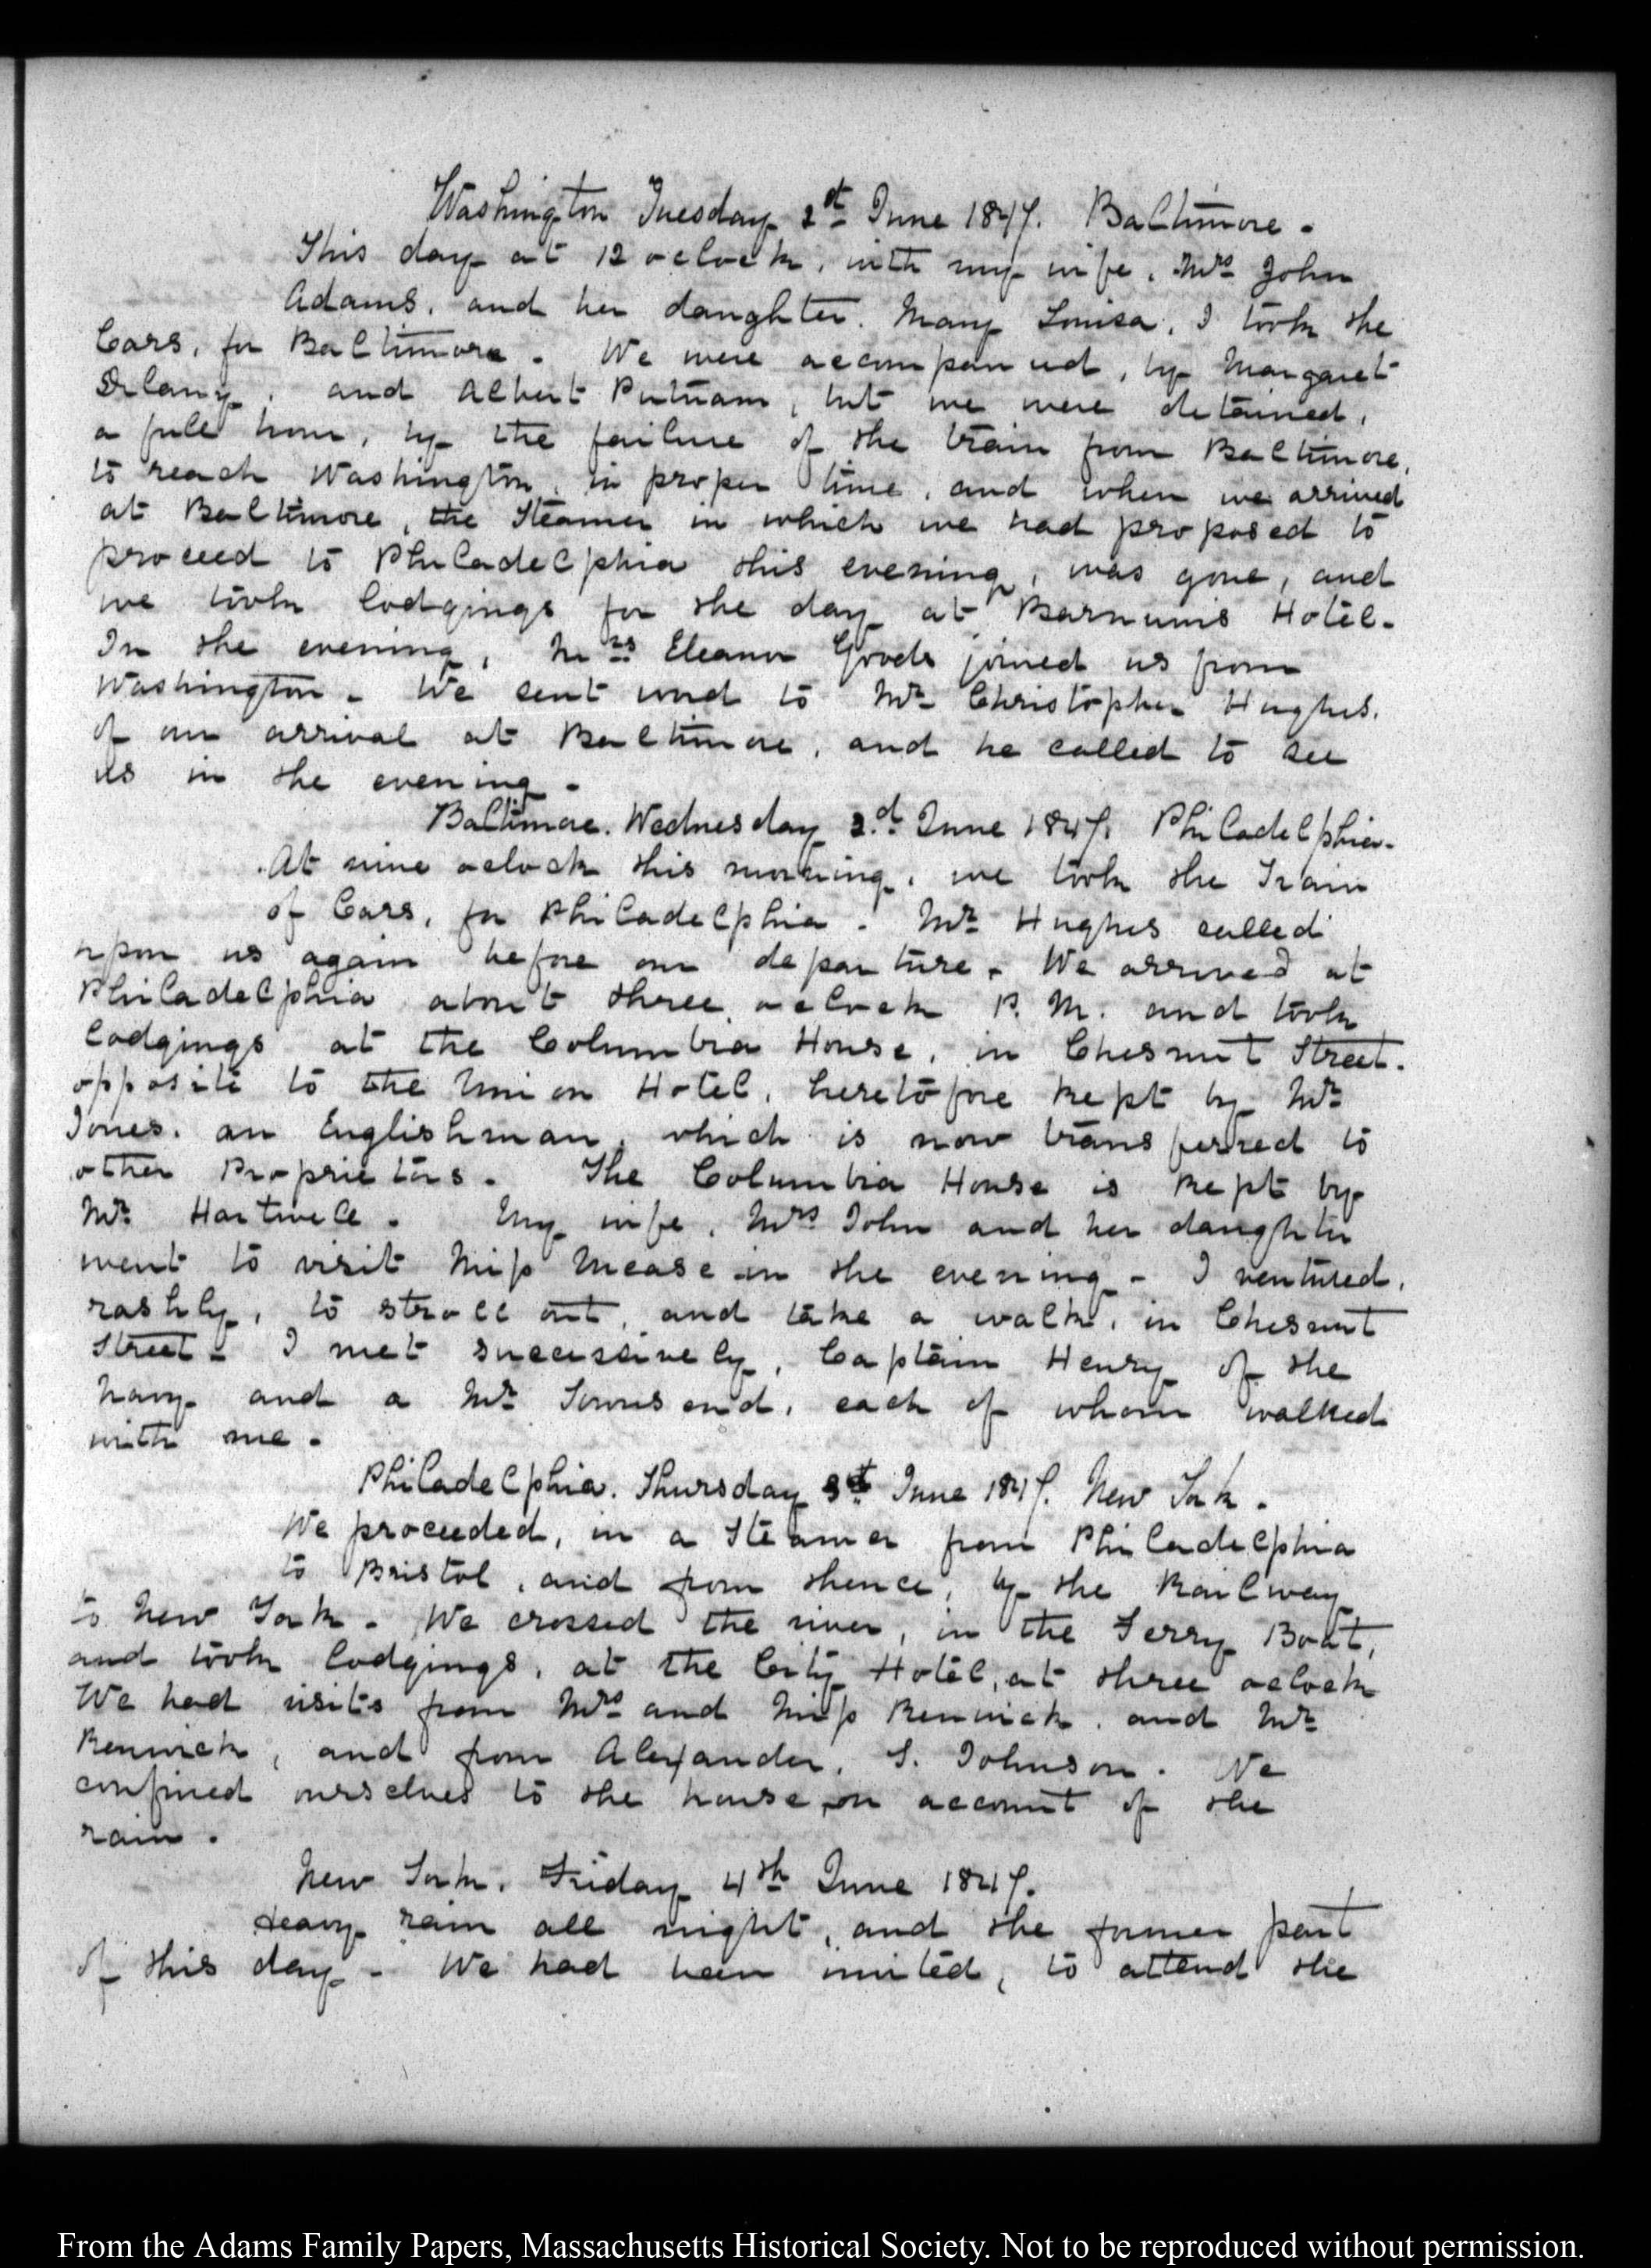 Washington Tuesday 2d June 1847. Baltimore.
This day at 12 oclock, with my wife, Mrs John
Adams, and her daughter Mary Louisa, I took the
Cars, for Baltimore. We were accompanied, by Margaret
Delany, and Albert Putnam, but we were detained,
a full hour, by the failure of the train from Baltimore,
to reach Washington, in proper time, and when we arrived
at Baltimore, the Steamer in which we had proposed to
proceed to Philadelphia this evening, was gone, and
we took lodgings for the day at Barnum's Hotel.
In the evening, Mrs Eleanor Goods joined us from
Washington. We sent word to Mr Christopher Hughes,
of our arrival at Baltimore, and he called to see
us in the evening.
Baltimore. Wednesday 2d. June 1847. Philadelphia.
At nine oclock this morning, we took the Train
of Cars, for Philadelphia. Mr Hughes called
upon us again before our departure. We arrived at
Philadelphia about three oclock P. M. and took
lodgings at the Columbia House, in Chesnut Street.
opposite to the Union Hotel, heretofore kept by Mr
Jones. an Englishman, which is now transferred to
other Proprietors. The Columbia House is kept by
Mr Hartwell. My wife, Mrs John and her daughter
went to visit Miss Mease in the evening - I ventured,
rashly, to stroll out, and take a walk, in Chesnut
Street - I met successively, Captain Henry of the
Navy and a Mr Townsend, each of whom walked
with me.
Philadelphia. Thursday 3d June 1847. New York.
We proceeded, in a Steamer from Philadelphia
to Bristol, and from thence, by the Railway
to New York - We crossed the river, in the Ferry Boat,
and took lodgings, at the City Hotel, at three oclock
We had visits from Mrs and Miss Renwick, and Mr
Renwick, and from Alexander. S. Johnson. We
confined ourselves to the house, on account of the
rain.
New York. Friday 4th June 1847.
Heavy rain all night, and the former part
of this day - We had been invited, to attend the
From the Adams Family Papers, Massachusetts Historical Society. Not to be reproduced without permission.